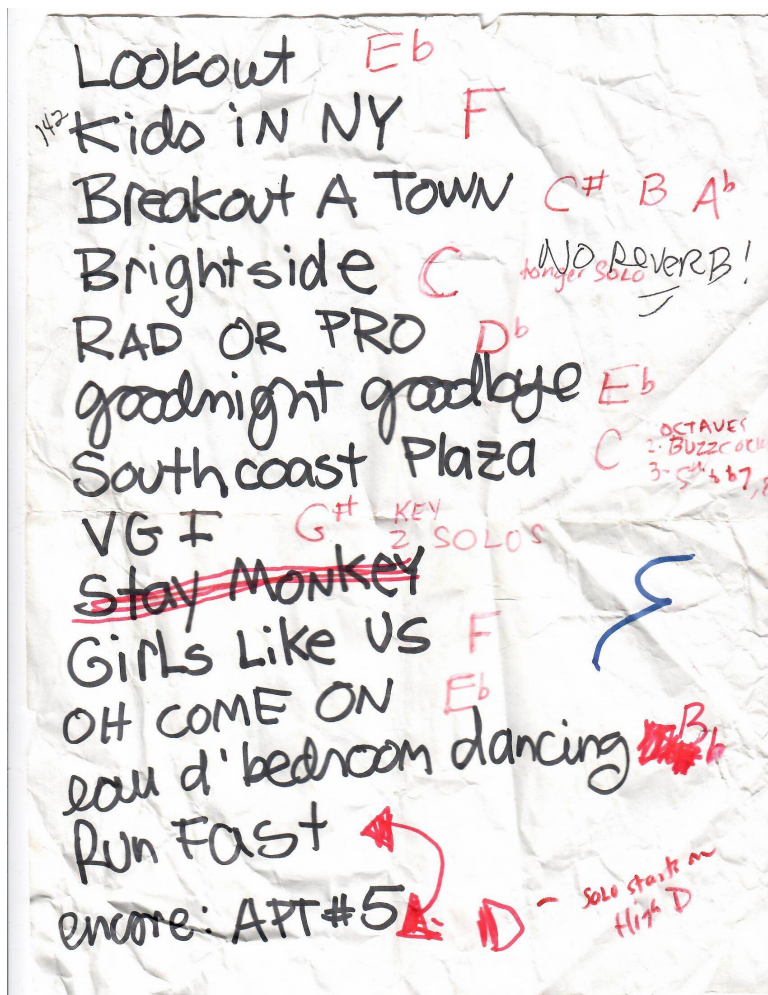 Lookout Eb
142 Kids iN NY F
Breakout A TOWN C# B Ab
Brightside C longer SOLO NO REVERB!
RAD OR PRO Db
goodnight goodbye Eb
OCTAVES
Southcoast Plaza C 2. BUZZCOCK
3- 5th b7,
VGI G# KEY
2 SOLOS
Stay MONKEY
GirLs Like US F
OH COME ON Eb
eau d'bedroom dancing Bb
Run Fast
encore: APT #5 D - Solo starts on
High D